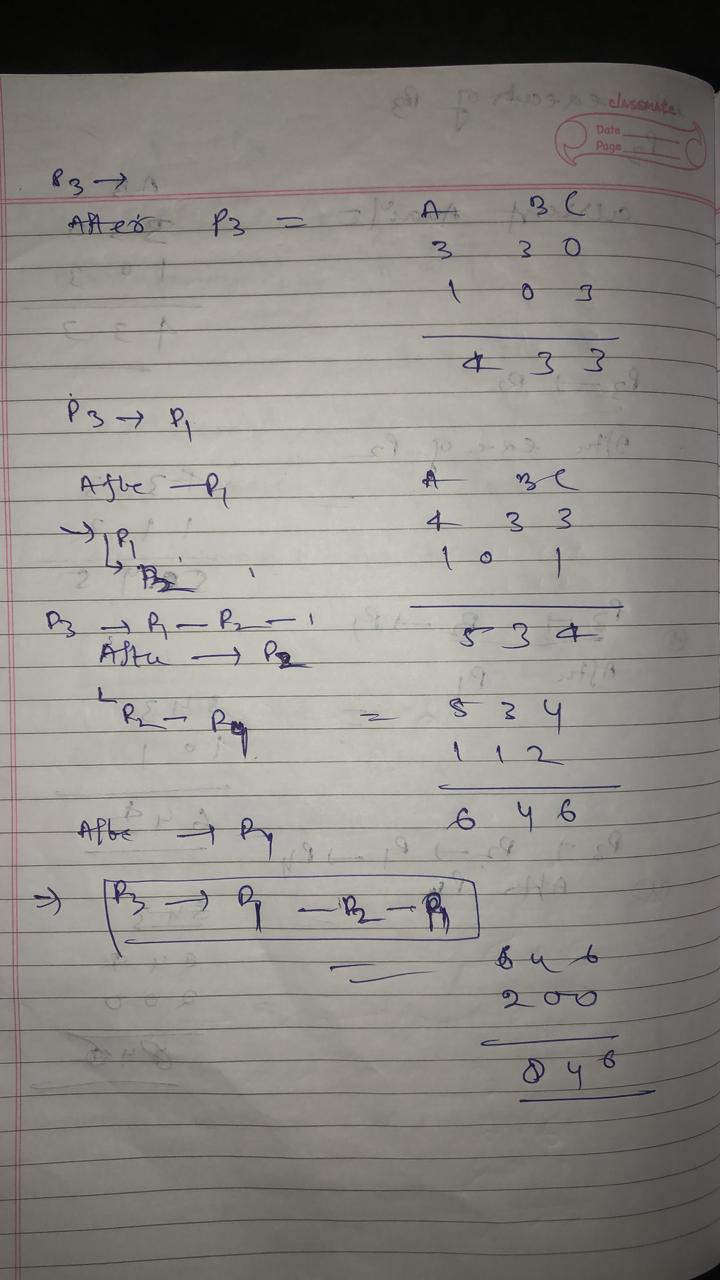 classmate
Date
Page
P3 →
After P3 = A B C
3 3 0
1 0 3
4 3 3
P3 → P1
After — P1 A B C
→ P1 4 3 3
↳ P2 1 0 1
P3 → P1 — P2 — 5 3 4
After → P2
P2 — P4 = 5 3 4
1 1 2
After → P4 6 4 6
⇒ P3 → P1 — P2 — P4
6 4 6
2 0 0
8 4 6